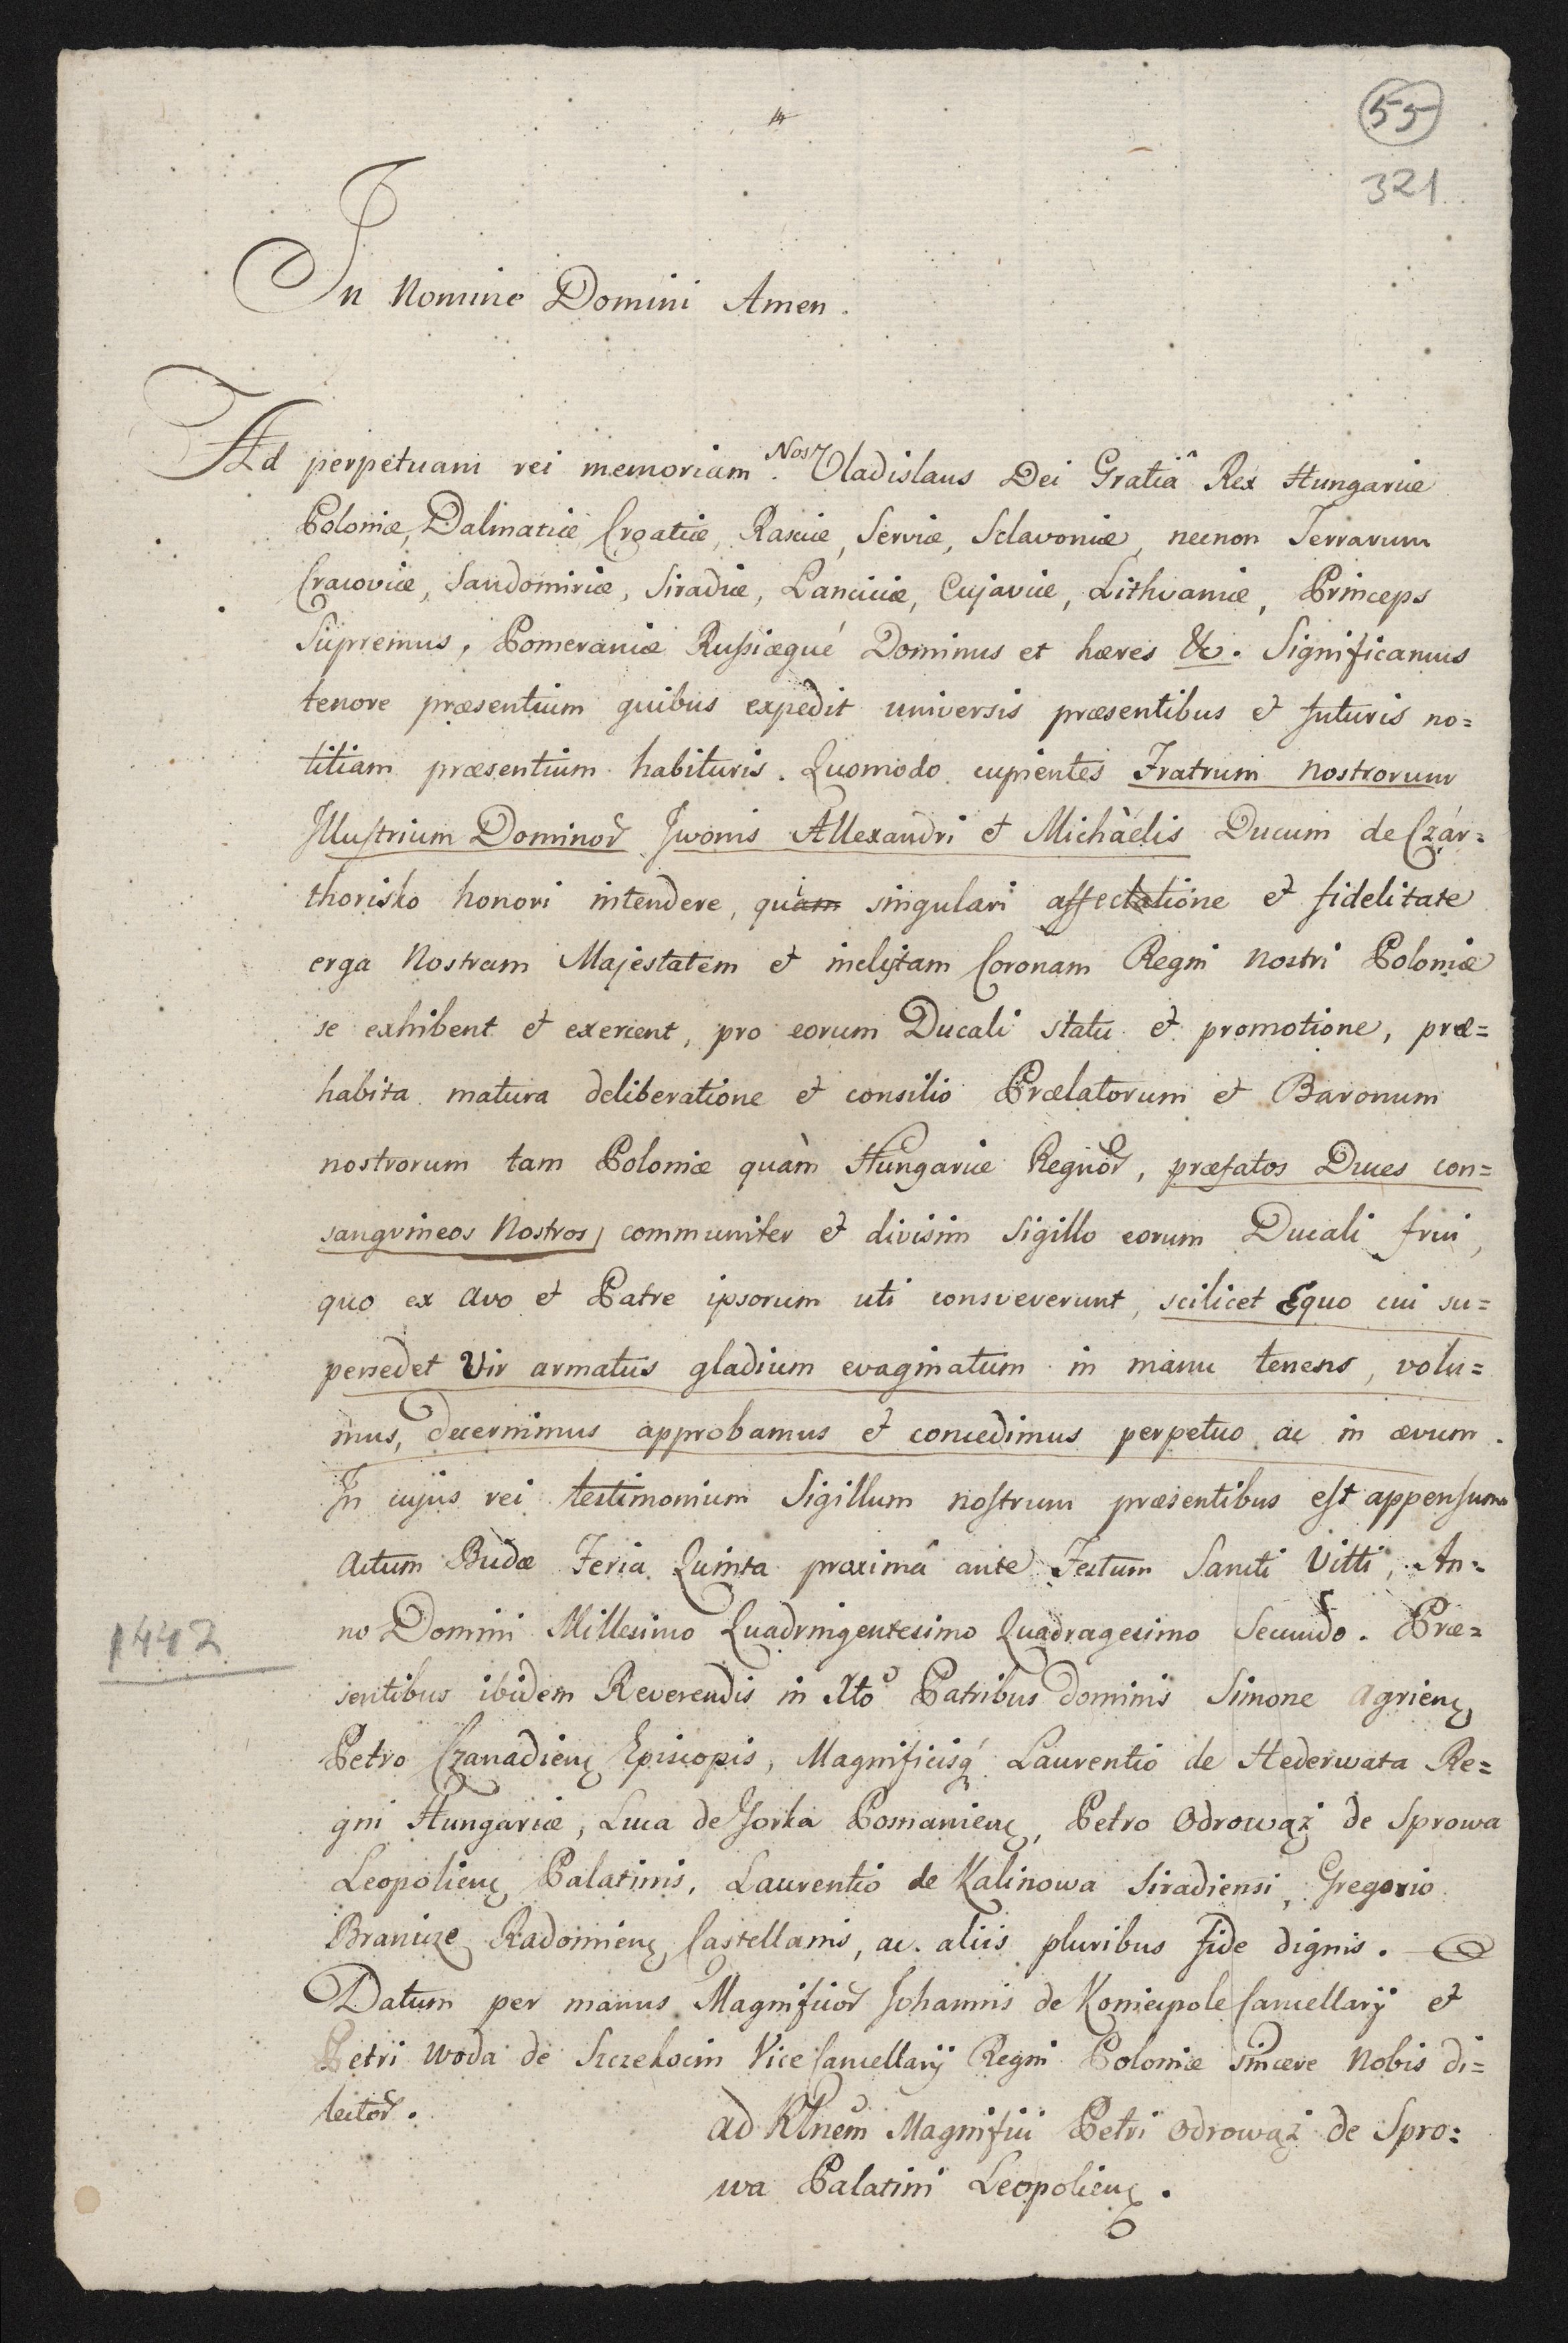 55
321
In Nomine Domini Amen.
Ad perpetuam rei memoriam. Nos Vladislaus Dei Gratiâ Rex Hungariæ
Poloniæ, Dalmatiæ Croatiæ, Rasciæ, Serviæ, Sclavoniæ, necnon Terrarum
Cracoviæ, Sandomiriæ, Siradiæ, Lanciciæ, Cujaviæ, Lithvaniæ, Princeps
Supremus, Pomeraniæ Russiæqué Dominus et hæres &c. Significamus
tenore præsentium quibus expedit universis præsentibus et futuris no=
titiam præsentium habituris. Quomodo cupientes Fratrum nostrorum
Illustrium Dominor Iwonis Allexandri et Michàelis Ducum de Czár=
thorisko honori intendere, qui singulari affectione et fidelitate
erga Nostram Majestatem et inclytam Coronam Regni Nostri Poloniæ
se exhibent et exercent, pro eorum Ducali statu et promotione, præ=
habita matura deliberatione et consilio Prælatorum et Baronum
nostrorum tam Poloniæ quàm Hungariæ Regnor, præfatos Duces con=
sangvineos Nostros, communiter et divisim Sigillo eorum Ducali frui,
quo ex Avo et Patre ipsorum uti consveverunt, scilicet Equo cui su=
persedet Vir armatus gladium evaginatum in manu tenens, volu=
mus, decernimus approbamus et concedimus perpetuo ac in ævum.
In cujus rei testimonium Sigillum nostrum præsentibus est appensum
Actum Budæ Feria Quinta proximâ ante Festum Sancti Vitti, An=
no Domini Millesimo Quadringentesimo Quadragesimo Secundo. Præ=
1442
sentibus ibidem Reverendis in Xto Patribus Dominis Simone Agrien
Petro Czanadien Episcopis, Magnificisq Laurentio de Hederwata Re=
gni Hungariæ, Luca de Gorka Posnanien, Petro Odrowąż de Sprowa
Leopolien Palatinis, Laurentio de Kalinowa Siradiensi, Gregorio
Branicze Radomien Castellanis, ac aliis pluribus fide dignis.
Datum per manus Magnificor Johannis de Koniecpole Cancellarij et
Petri Woda de Szczekocin Vice Cancellarij Regni Poloniæ sincere Nobis di=
lector.
ad Rlnem Magnifici Petri Odrowąż de Spro=
wa Palatini Leopolien.